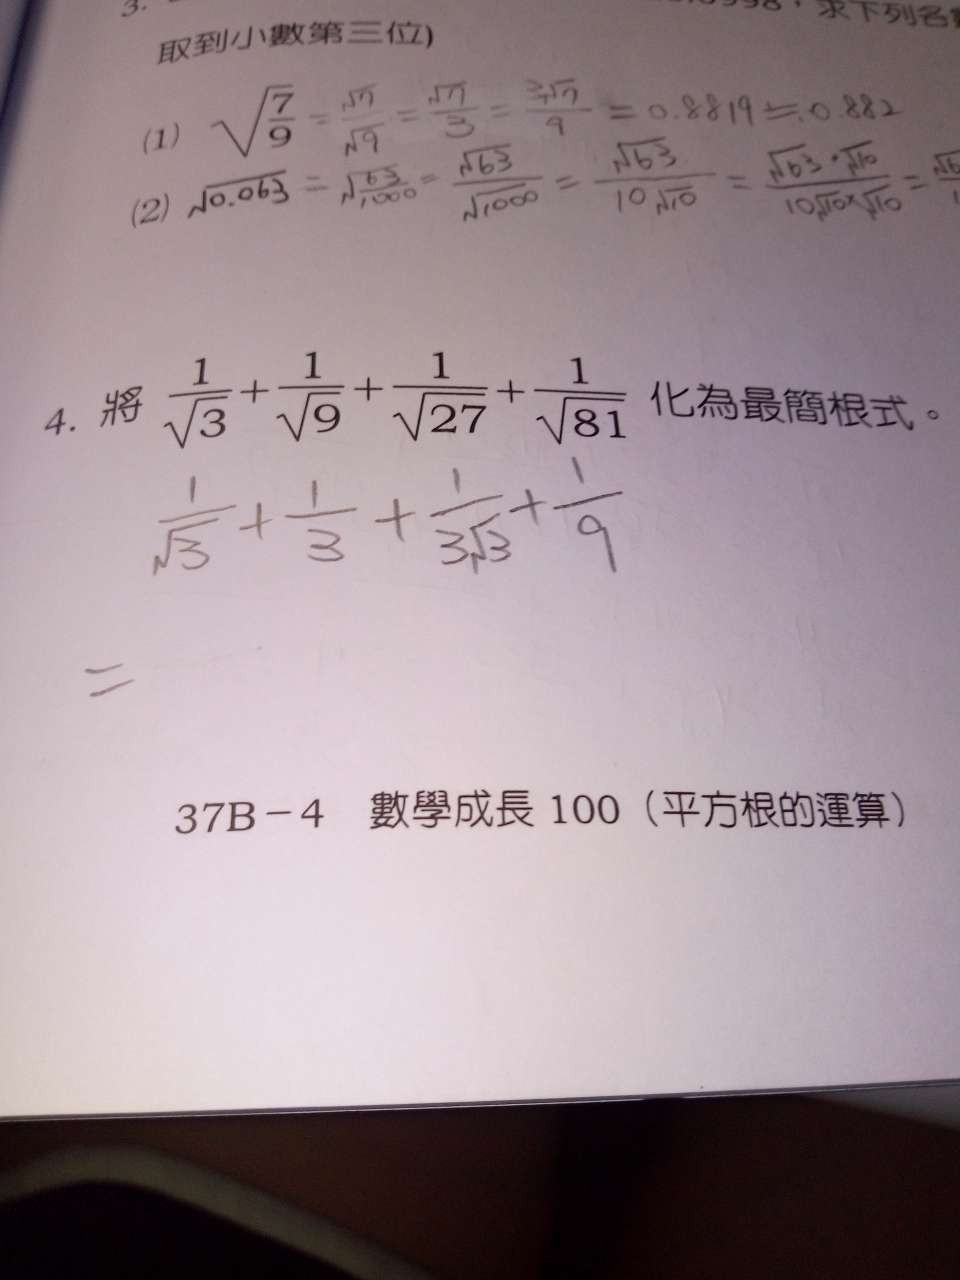 3.
求下列各
取到小數第三位)
(1) √(7/9) = √7/√9 = √7/3 = 3√7/9 = 0.8819 ≒ 0.882
(2) √0.063 = √(63/1000) = √63/√1000 = √63/10√10 = √63·√10/10√10×√10 =
4. 將 1/√3 + 1/√9 + 1/√27 + 1/√81 化為最簡根式。
1/√3 + 1/3 + 1/3√3 + 1/9
=
37B－4 數學成長 100（平方根的運算）